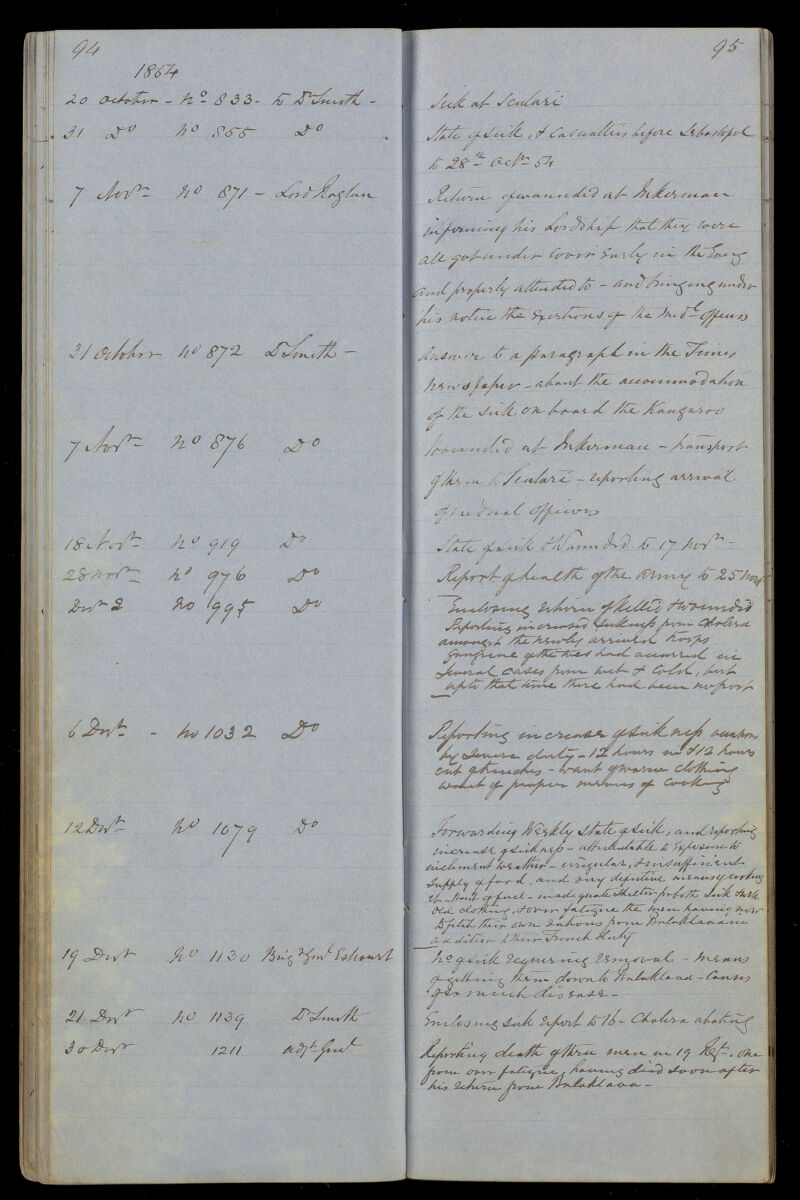 94
1854
20 October - No 833 - to Dr Smith -
31 Do No 855 Do
7 Novr - No 871 - Lord Raglan
31 October No 872 Dr Smith -
7 Novr No 876 Do
18 Novr No 919 Do
28 Novr No 976 Do
Decr 2 No 995 Do
6 Decr - No 1032 Do
12 Decr No 1079 Do
19 Decr No 1130 Brigr Genl Estcourt
21 Decr No 1139 Dr Smith
30 Decr 1211 Adjt Genl
95
Sick at Scutari
State of sick, & casualties before Sebastopol
to 28th Octr 54
Return of wounded at Inkerman
informing his Lordship that they were
all got under cover early in the Eveng
and properly attended to - and bringing under
his notice the exertions of the Medl officers
Answer to a paragraph in the Times
Newspaper - about the accommodation
of the sick on board the Kangaroo
Wounded at Inkerman - transport
of them to Scutari - reporting arrival
of medical officers
State of sick & Wounded to 17 Novr -
Report of health of the Army to 25 Novr
Enclosing return of killed & wounded
Reporting increased sickness from Cholera
amongst the newly arrived troops
Gangrene of the toes had occurred in
several cases from wet & cold, but
up to that time there had been no frost
Reporting increase of sickness
by severe duty - 12 hours in & 12 hours
out of trenches - want of warm clothing
want of proper means of cooking
Forwarding Weekly State of sick, and reporting
increase of sickness - attributable to exposure to
inclement weather - irregular, & insufficient
supply of food, and very defective means of cooking
it - Want of fuel - inadequate shelter for both sick & well
old clothing, & over fatigue the men having now
to fetch their own rations from Balaklava in
addition to their Trench duty
No of sick requiring removal - means
of getting them down to Balaklava - Causes
of so much disease -
Enclosing sick report to 16 - Cholera abating
Reporting death of three men in 19 Regt. one
from over fatigue, having died soon after
his return from Balaklava -